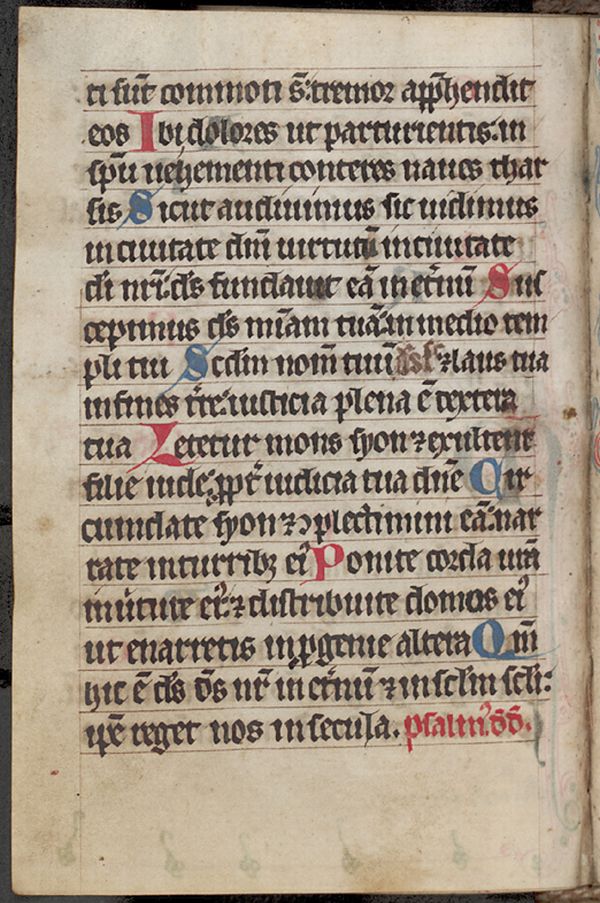 ti sūt commoti s̄: tremor app̄hendit
eos Ibi dolores ut parturientis: in
sp̄u uehementi conteres naues thar
sis Sicut audiuimus sic uidimus
in ciuitate dn̄i uirtutū in ciuitate
di nr̄i: ds fundauit eā in et̄nū Sus
cepimus ds mīam tuā: in medio tem
pli tui Scdm nom̄ tuū ⁊ laus tua
in fines tr̄e: iusticia plena ē dextera
tua Letetur mons syon ⁊ exultent
filie iude: ꝓpt̄ iudicia tua dn̄e Cir
cumdate syon ⁊ ↄplectimini eā: nar
rate in turribꝫ eiꝰ Ponite corda ur̄a
in uirtute eiꝰ: ⁊ distribuite domos eiꝰ
ut enarretis in ꝓgenie altera Qm̄
hic ē ds d̄s nr̄ in et̄nū ⁊ in sclm scli:
ip̄e reget nos in secula. psalmꝰ. dd̄.